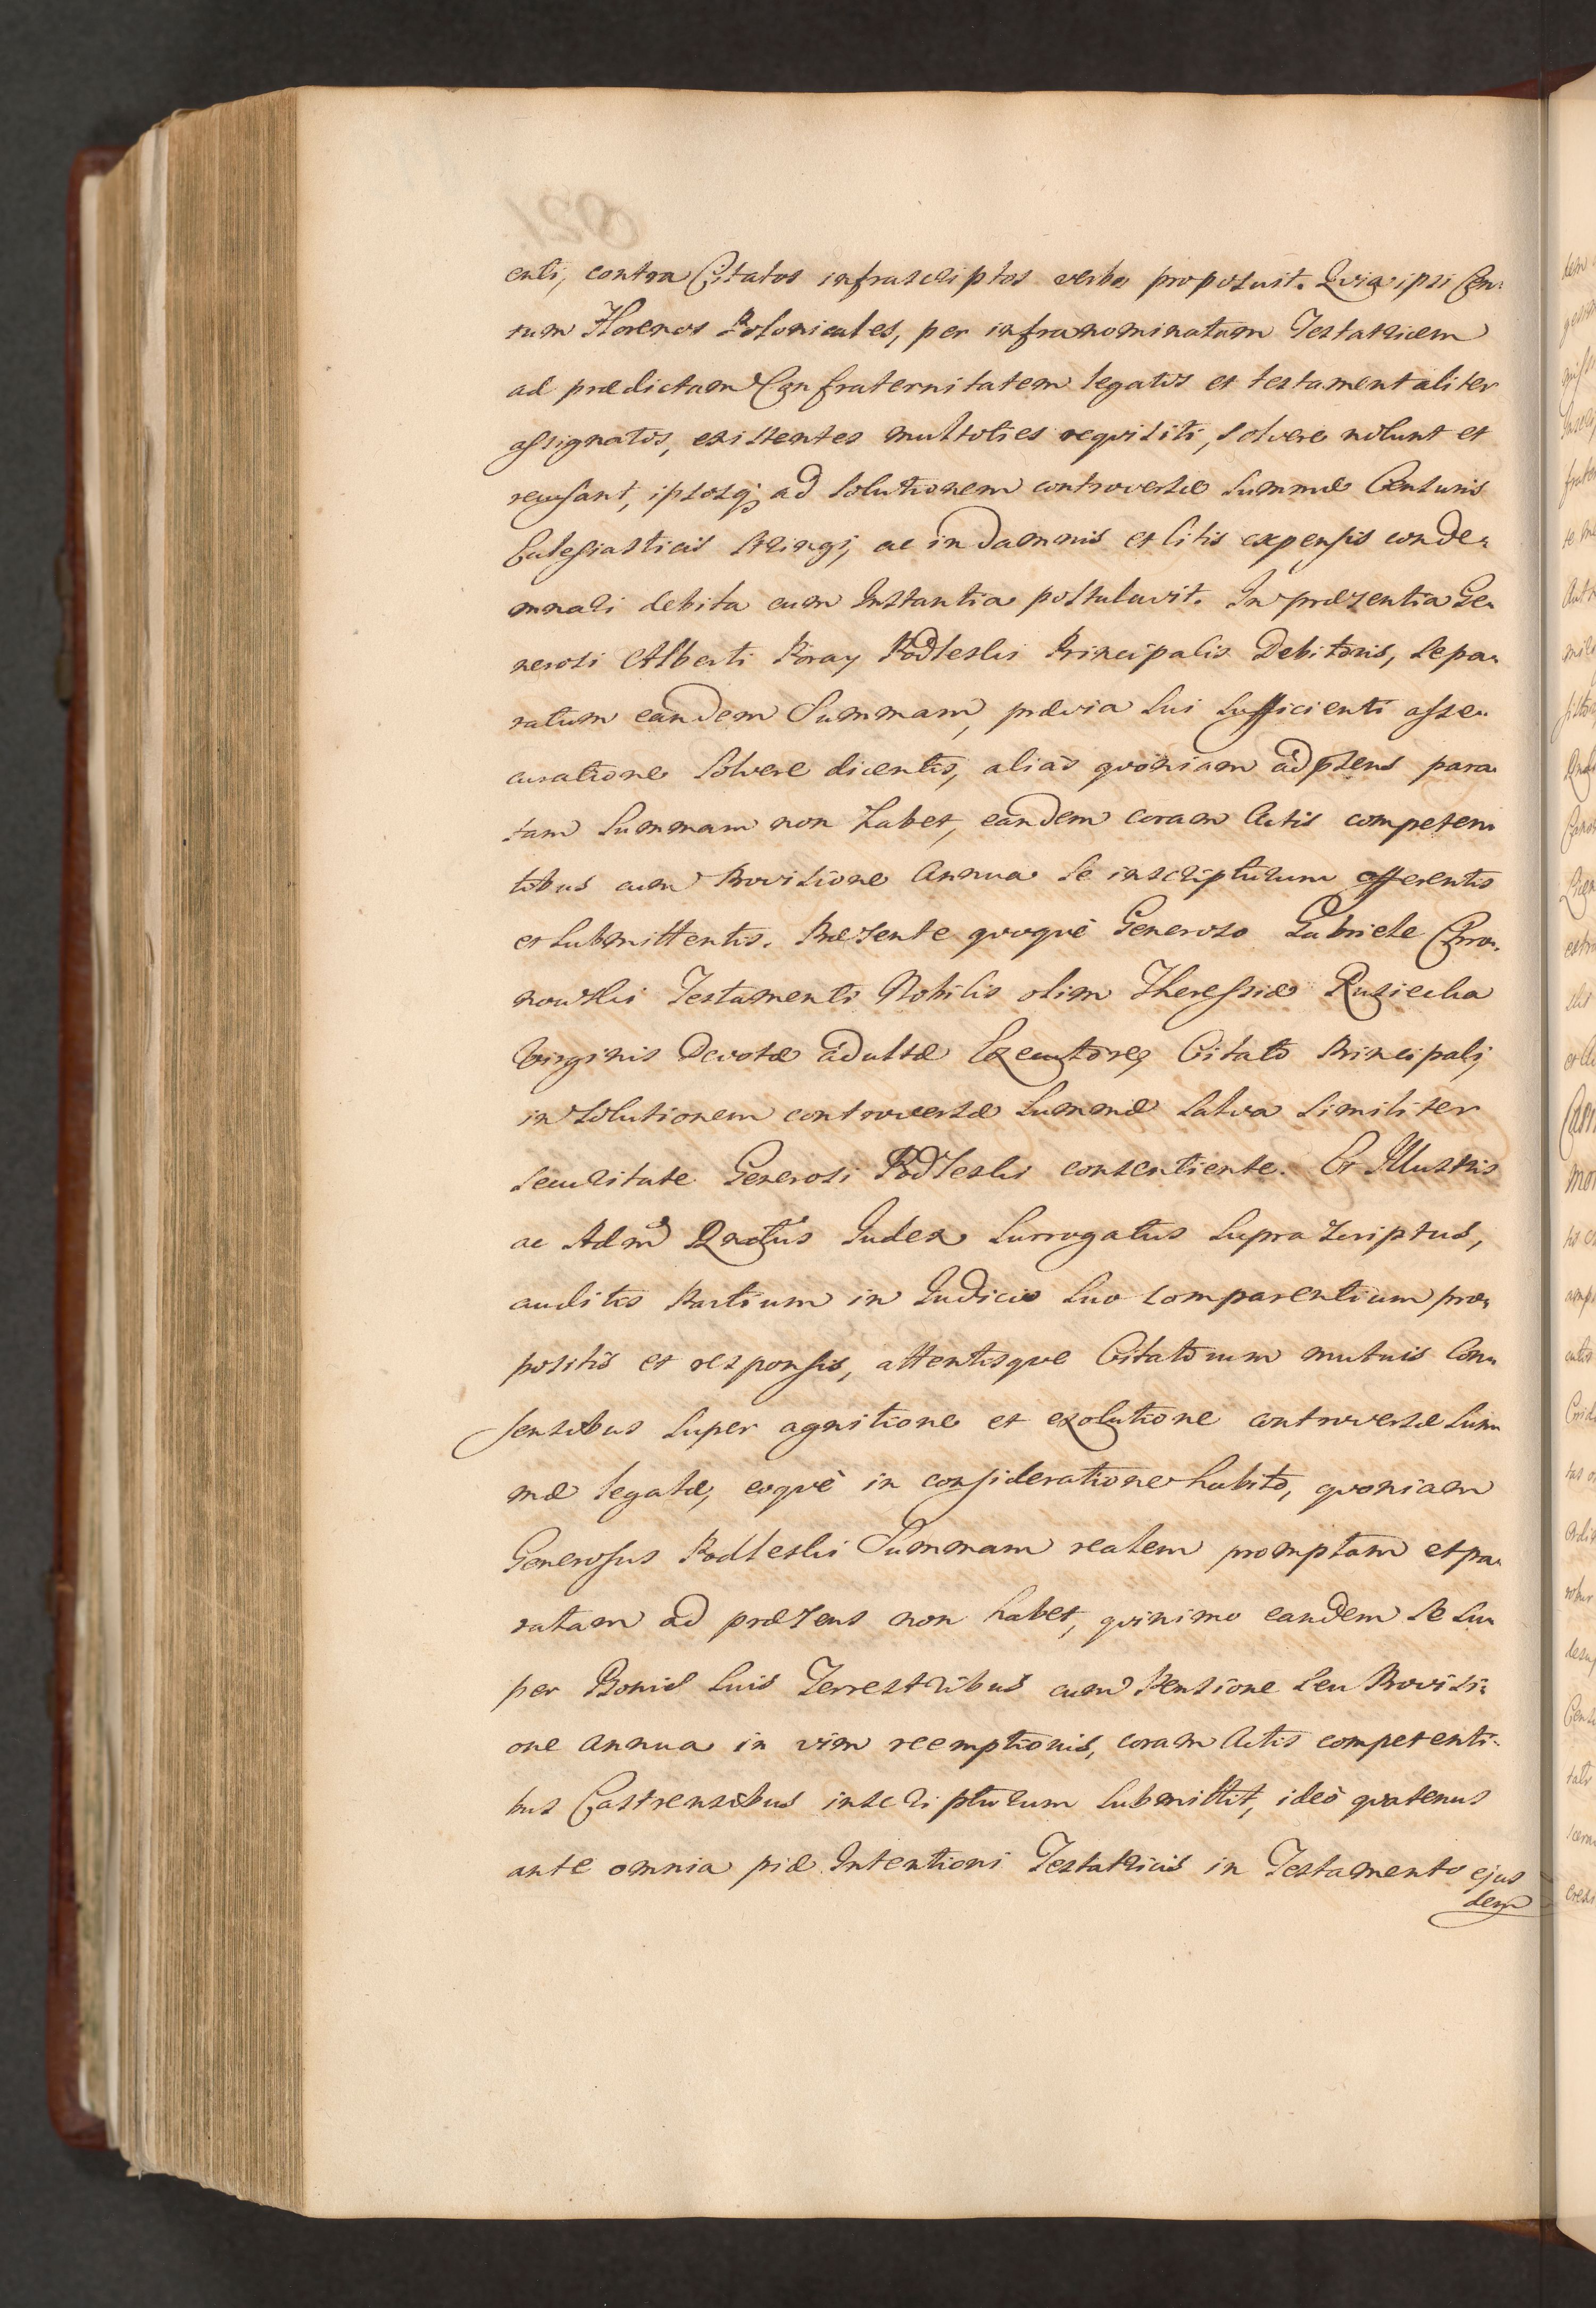 enti, contra Citatos infrascriptos verbo proposuit. Quia ipsi Cen:
tum Florenos Polonicales, per infranominatam Testatricem
ad prædictam Confraternitatem legatos et testamentaliter
assignatos, existentes multoties requisiti, solvere nolunt et
recusant, ipsosq; ad solutionem controversæ Summæ Censuris
Eclesiasticis stringi, ac in damnis et litis expensis conde:
mnari debita cum Instantia postulavit. In præsentia Ge:
nerosi Alberti Poray Podleski Principalis Debitoris, se pa:
ratum eandem Summam, prævia sui sufficienti asse:
curatione solvere dicentis, alias quoniam ad pſens para:
tam Summam non habet, eandem coram Actis competen:
tibus cum Provisione Annua se inscripturum offerentis
et submittentis. Præsente quoquè Generoso Gabriele
Testamenti Nobilis olim Theressiæ
Virginis Devotæ adultæ Executore, Citato Principali
in solutionem controversæ Summæ salva similiter
securitate Generosi Podleski consentiente. Et Illustris
ac Adm Rndus Iudex Surrogatus suprascriptus,
auditis Partium in Iudicio suo comparentium pro:
positis et responsis, attentisque Citatorum mutuis Con:
sensibus super agnitione et exolutione controversæ Sum:
mæ legatæ, eoquè in consideratione habito, quoniam
Generosus Podleski Summam realem promptam et pa:
ratam ad præsens non habet, quinimo eandem se su:
per Bonis suis Terrestribus cum Pensione seu Provisi:
one annua in vim reemptionis, coram Actis competenti:
bus Castrensibus inscripturum submittit, ideò quatenus
ante omnia piæ Intentioni Testatricis in Testamento ejus
dem